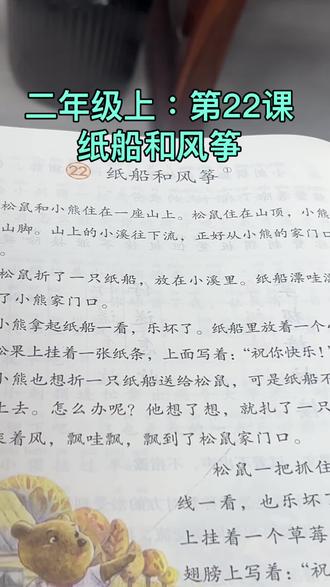 二年级上：第22课
纸船和风筝
22 纸船和风筝①
松鼠和小熊住在一座山上。松鼠住在山顶，小熊
山脚。山上的小溪往下流，正好从小熊的家门口
。
松鼠折了一只纸船，放在小溪里。纸船漂哇漂
了小熊家门口。
小熊拿起纸船一看，乐坏了。纸船里放着一个
松果上挂着一张纸条，上面写着：“祝你快乐！”
小熊也想折一只纸船送给松鼠，可是纸船不
上去。怎么办呢？他想了想，就扎了一只
着风，飘哇飘，飘到了松鼠家门口。
松鼠一把抓住
线一看，也乐坏了
上挂着一个草莓
翅膀上写着：“祝